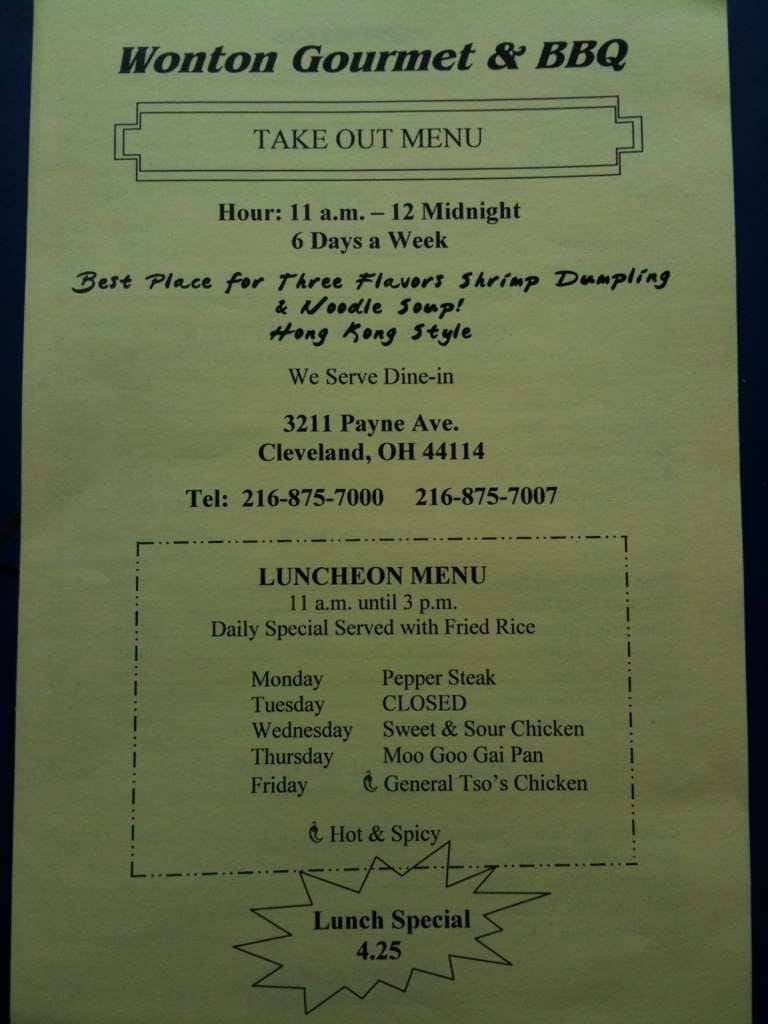 Wonton Gourmet & BBQ
TAKE OUT MENU
Hour: 11 a.m. – 12 Midnight
6 Days a Week
Best Place for Three Flavors Shrimp Dumpling
& Noodle Soup!
Hong Kong Style
We Serve Dine-in
3211 Payne Ave.
Cleveland, OH 44114
Tel: 216-875-7000 216-875-7007
LUNCHEON MENU
11 a.m. until 3 p.m.
Daily Special Served with Fried Rice
Monday Pepper Steak
Tuesday CLOSED
Wednesday Sweet & Sour Chicken
Thursday Moo Goo Gai Pan
Friday General Tso's Chicken
Hot & Spicy
Lunch Special
4.25